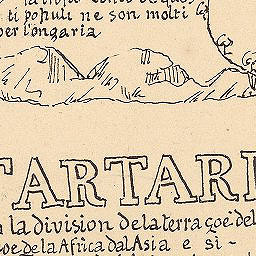 ti populi ne son molti
per longaria
TARTARI
la division dela terra çoe del
çoe dela Africa dal Asia e si-